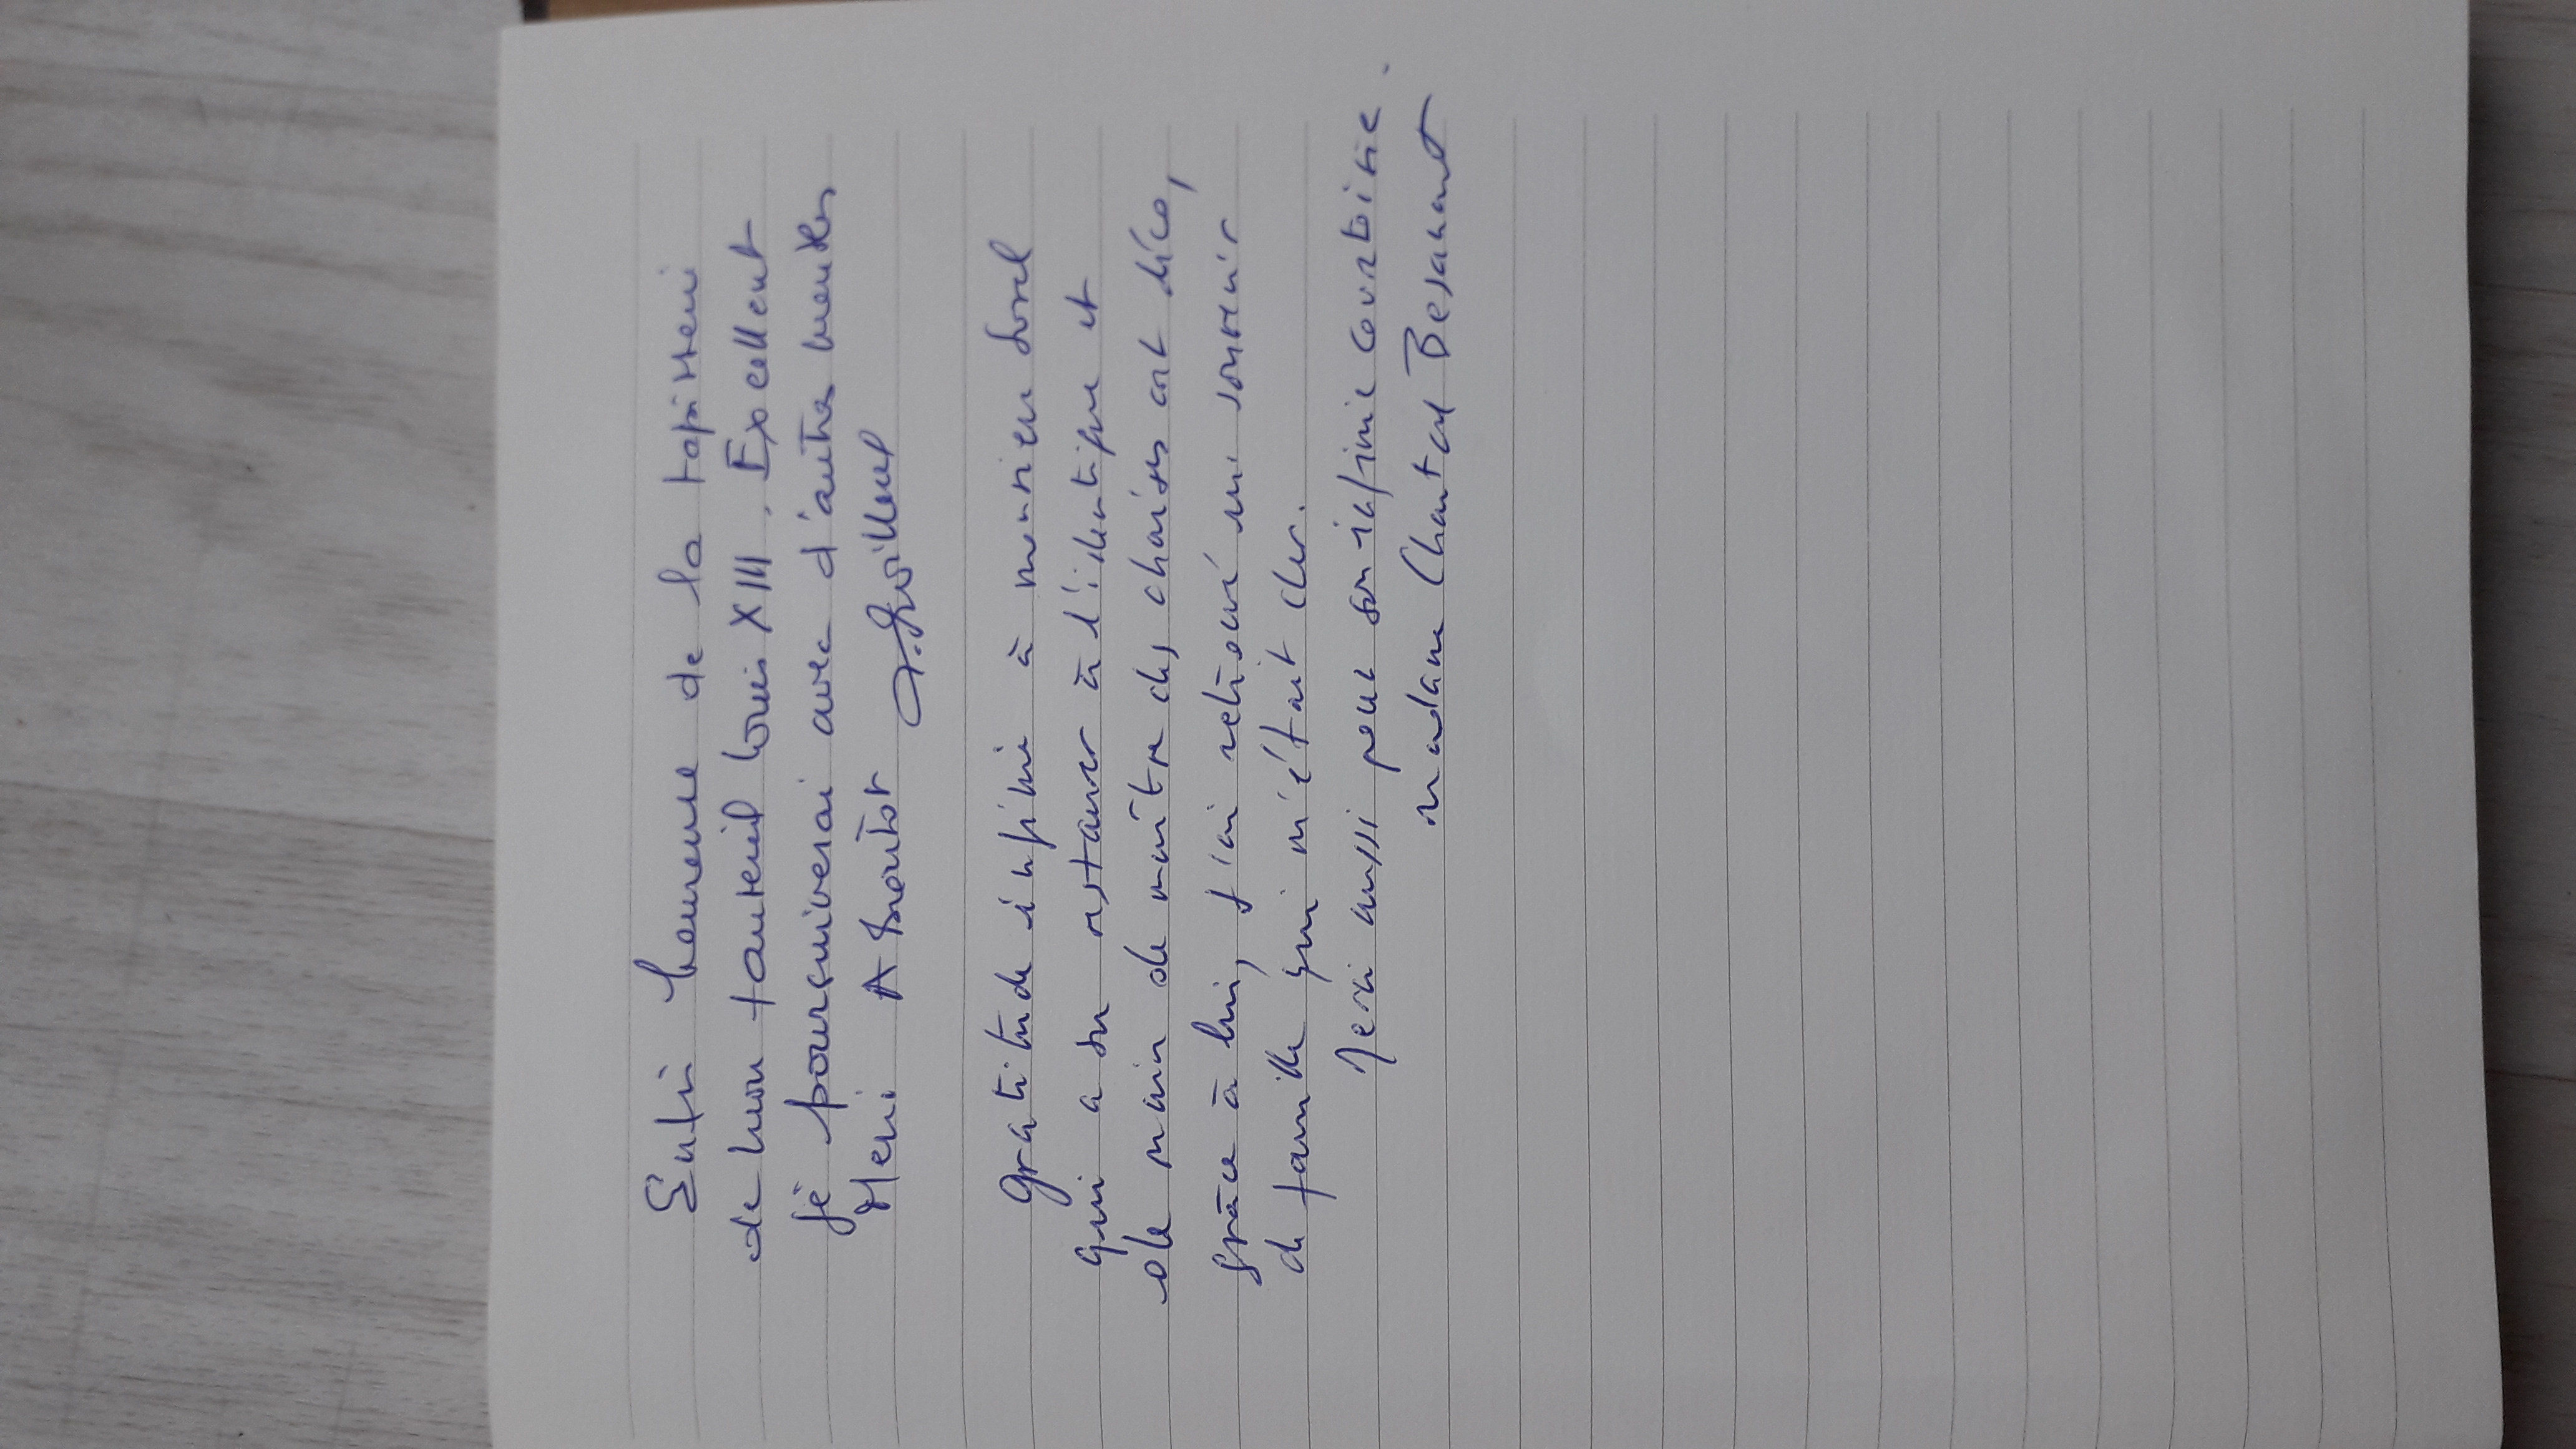 Enfin heureuse de la tapisserie
de mon fauteuil Louis XIII. Excellent
je poursuiverai avec d'autres meubles
Merci A bientôt
gratitude infinie à monsieur Sorel
qui a su restaurer à l'identique et
de main de maître des chaises art déco,
grâce à lui, j'ai retrouvé un souvenir
de famille qui m'était cher.
Merci aussi pour son infinie courtoisie.
Madame Chantal